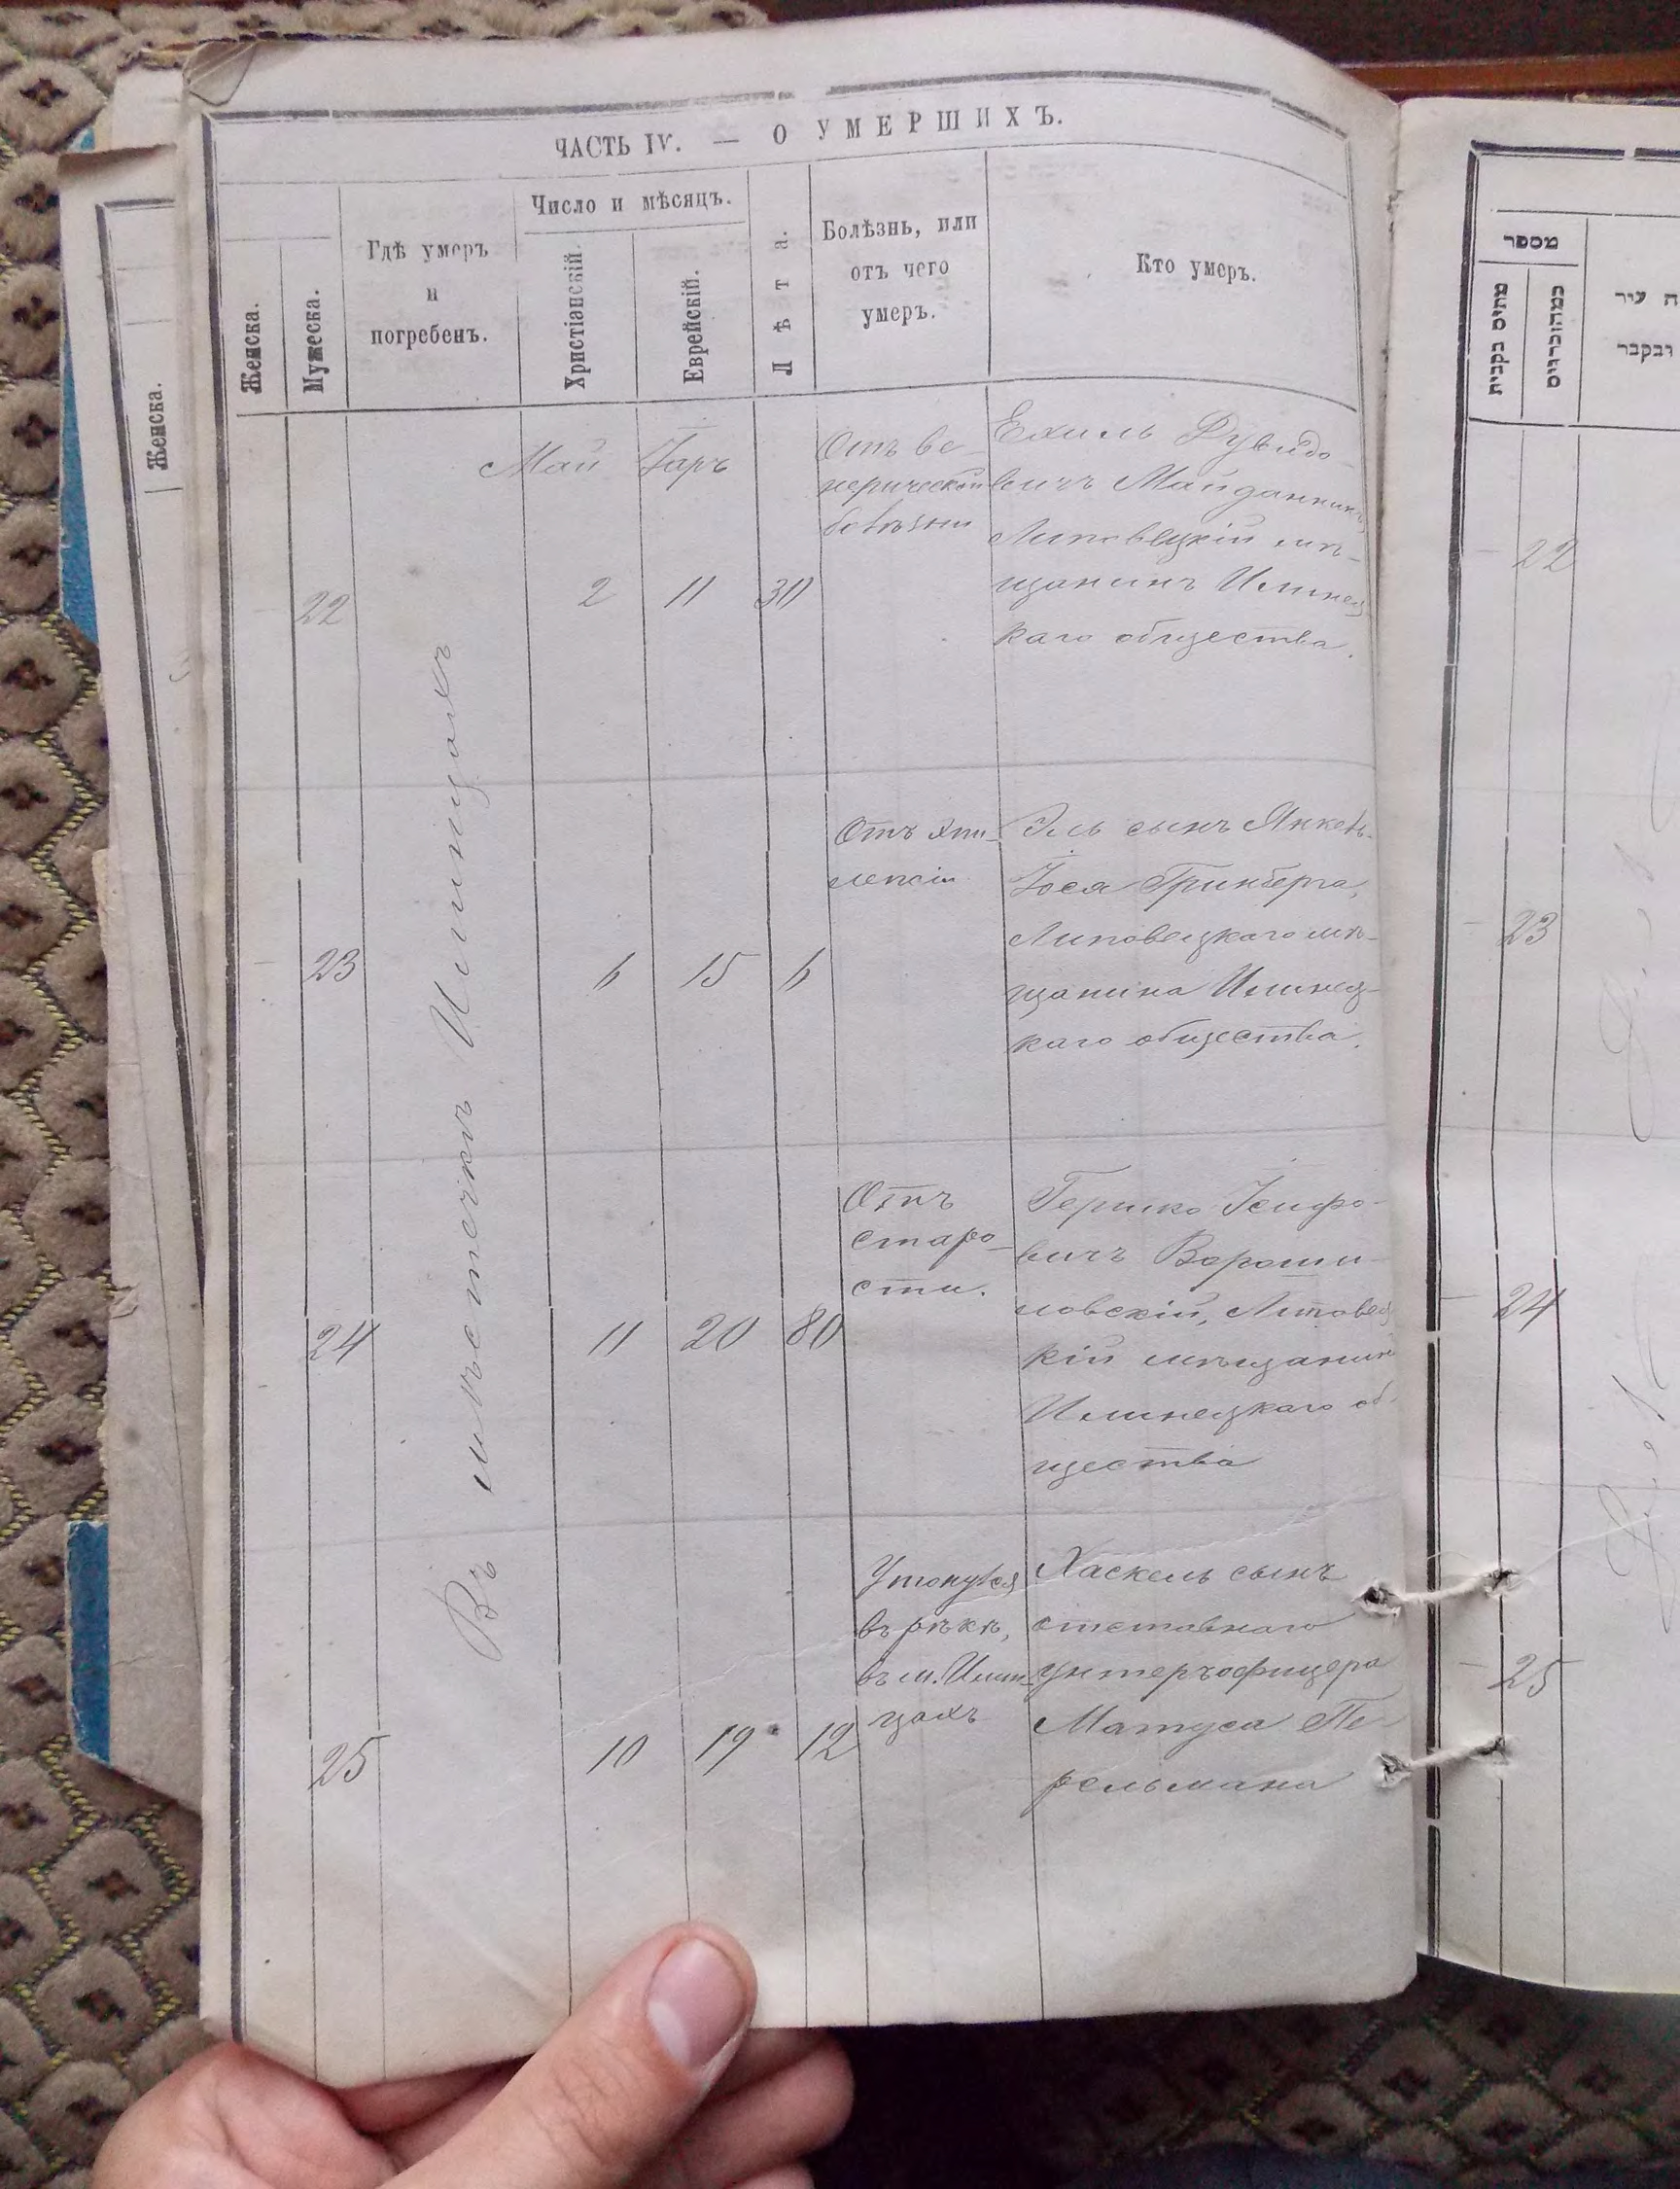 ЧАСТЬ IV. — О УМЕРШИХЪ.
Женска.
Мужеска.
Гдѣ умеръ
и
погребенъ.
Число и мѣсяцъ.
Христіанскій.
Еврейскій.
Лѣта.
Болѣзнь, или
отъ чего
умеръ.
Кто умеръ.
Женска.
Въ мѣстечкѣ Илинцахъ
Май Іаръ
22
2 11 30
Отъ ве-
нерической
болѣзни
Ехиль Дувидо-
вичъ Майданникъ,
Липовецкій мѣ-
щанинъ Илинец
каго общества.
23
6 15 6
Отъ эпи-
лепсіи
сынъ Янкель-
Іося Гринберга,
Липовецкаго мѣ-
щанина Илинец-
каго общества.
24
11 20 80
Отъ
старо-
сти.
Гершко Іосифо-
вичъ Вороши-
ловскій, Липовец
кій мѣщанинъ
Илинецкаго об-
щества
25
10 19 12
Утонулся
въ рѣкѣ,
въ м. Илин-
цахъ
Хаскель сынъ
отставнаго
унтеръофицера
Матуса Пе-
рельмана
מספר
מתים נקבות
ה עיר
ונקבר
22
23
24
25